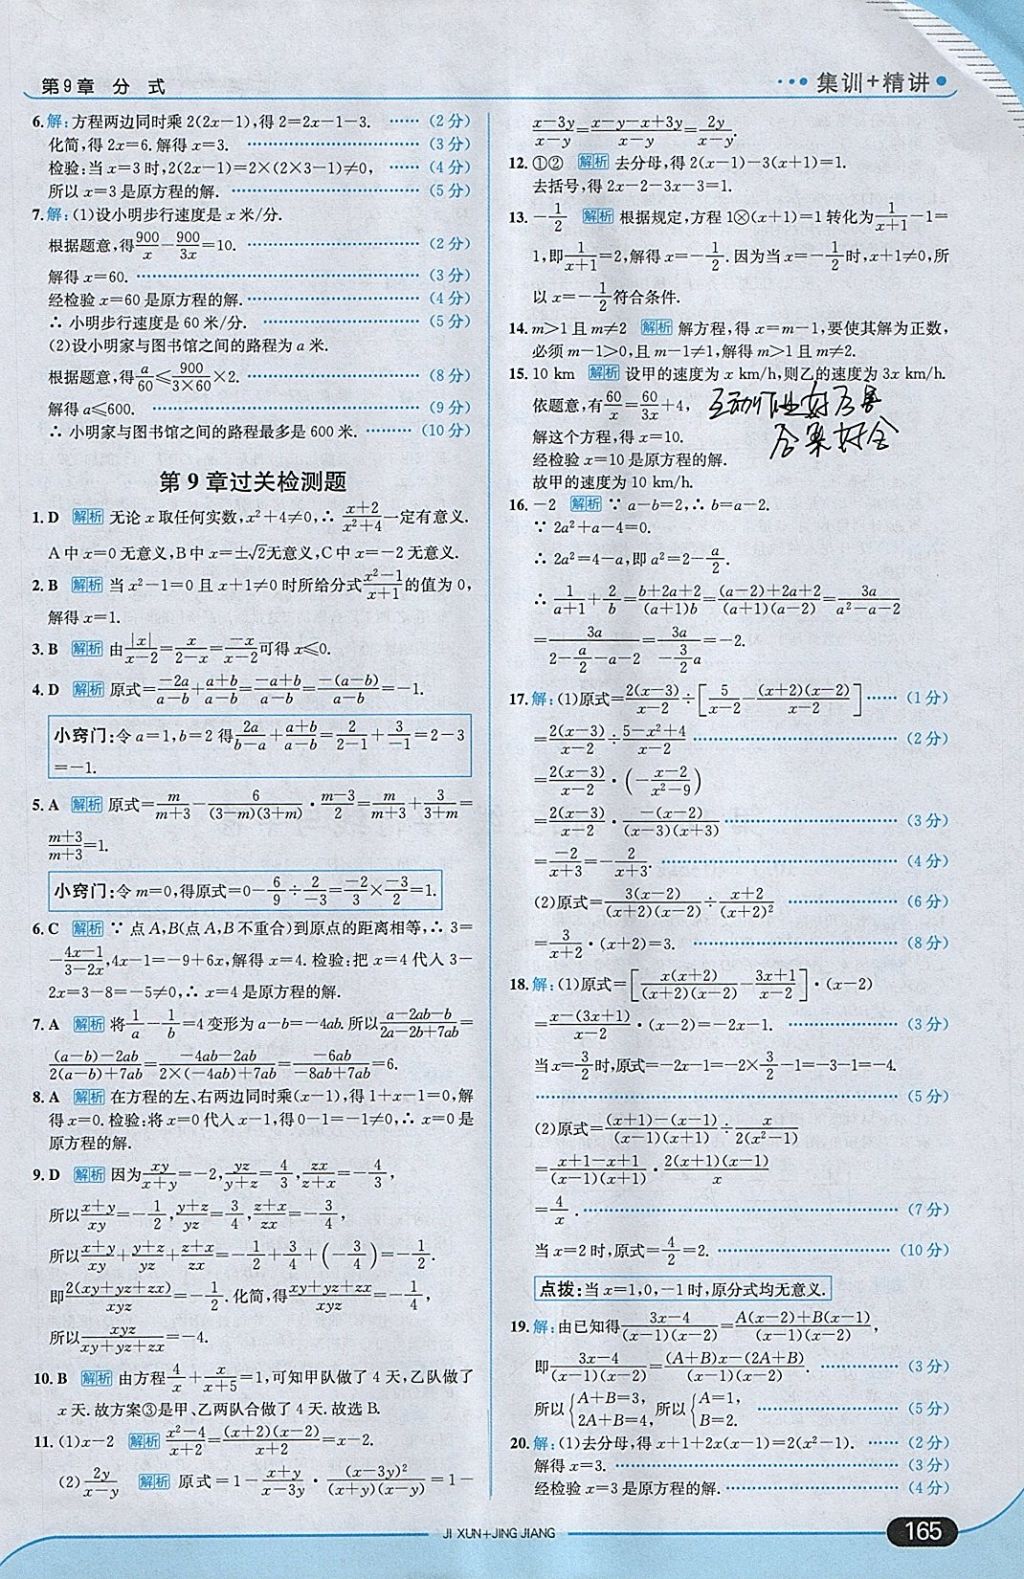 第9章 分 式
集训+精讲
6.解:方程两边同时乘 2(2x-1),得 2=2x-1-3. ……(2分)
化简,得 2x=6.解得 x=3. ……(3分)
检验:当 x=3 时,2(2x-1)=2×(2×3-1)≠0, ……(4分)
所以 x=3 是原方程的解. ……(5分)
7.解:(1)设小明步行速度是 x 米/分.
根据题意,得900/x-900/3x=10. ……(2分)
解得 x=60. ……(3分)
经检验 x=60 是原方程的解. ……(4分)
∴ 小明步行速度是 60 米/分. ……(5分)
(2)设小明家与图书馆之间的路程为 a 米.
根据题意,得a/60≤900/(3×60)×2. ……(8分)
解得 a≤600. ……(9分)
∴ 小明家与图书馆之间的路程最多是 600 米. ……(10分)
第9章过关检测题
1. D 解析 无论 x 取任何实数,x²+4≠0,∴ (x+2)/(x²+4)一定有意义.
A 中 x=0 无意义,B 中 x=±√2无意义,C 中 x=-2 无意义.
2. B 解析 当 x²-1=0 且 x+1≠0 时所给分式(x²-1)/(x+1)的值为 0,
解得 x=1.
3. B 解析 由|x|/(x-2)=x/(2-x)=-x/(x-2)可得 x≤0.
4. D 解析 原式=-2a/(a-b)+(a+b)/(a-b)=(-a+b)/(a-b)=-(a-b)/(a-b)=-1.
小窍门:令 a=1,b=2 得2a/(b-a)+(a+b)/(a-b)=2/(2-1)+3/-1=2-3
=-1.
5. A 解析 原式=m/(m+3)-6/((3-m)(3+m))·(m-3)/2=m/(m+3)+3/(3+m)=
(m+3)/(m+3)=1.
小窍门:令 m=0,得原式=0-6/9÷2/-3=-2/3×-3/2=1.
6. C 解析 ∵ 点 A,B(点 A,B 不重合)到原点的距离相等,∴ 3=
-(4x-1)/(3-2x),4x-1=-9+6x,解得 x=4. 检验:把 x=4 代入 3-
2x=3-8=-5≠0,∴ x=4 是原方程的解.
7. A 解析 将1/a-1/b=4 变形为 a-b=-4ab. 所以(a-2ab-b)/(2a-2b+7ab)=
((a-b)-2ab)/(2(a-b)+7ab)=(-4ab-2ab)/(2×(-4ab)+7ab)=-6ab/(-8ab+7ab)=6.
8. A 解析 在方程的左、右两边同时乘(x-1),得 1+x-1=0,解
得 x=0. 检验:将 x=0 代入 x-1,得 0-1=-1≠0,∴ x=0 是
原方程的解.
9. D 解析 因为xy/(x+y)=-2,yz/(y+z)=4/3,zx/(z+x)=-4/3,
所以(x+y)/xy=-1/2,(y+z)/yz=3/4,(z+x)/zx=-3/4,
所以(x+y)/xy+(y+z)/yz+(z+x)/zx=-1/2+3/4+(-3/4)=-1/2.
即2(xy+yz+zx)/xyz=-1/2. 化简,得(xy+yz+zx)/xyz=-1/4,
所以xyz/(xy+yz+zx)=-4.
10. B 解析 由方程4/x+x/(x+5)=1,可知甲队做了 4 天,乙队做了
x 天. 故方案③是甲、乙两队合做了 4 天. 故选 B.
11. (1)x-2 解析 (x²-4)/(x+2)=(x+2)(x-2)/(x+2)=x-2.
(2)2y/(x-y) 解析 原式=1-(x+y)/(x-3y)·(x-3y)²/((x+y)(x-y))=1-
(x-3y)/(x-y)=(x-y-x+3y)/(x-y)=2y/(x-y).
12. ①② 解析 去分母,得 2(x-1)-3(x+1)=1.
去括号,得 2x-2-3x-3=1.
13. -1/2 解析 根据规定,方程 1⊗(x+1)=1 转化为1/(x+1)-1=
1,即1/(x+1)=2,解得 x=-1/2. 因为当 x=-1/2时,x+1≠0,所
以 x=-1/2符合条件.
14. m>1 且 m≠2 解析 解方程,得 x=m-1,要使其解为正数,
必须 m-1>0,且 m-1≠1,解得 m>1 且 m≠2.
15. 10 km 解析 设甲的速度为 x km/h,则乙的速度为 3x km/h.
依题意,有60/x=60/3x+4,
解这个方程,得 x=10.
经检验 x=10 是原方程的解.
故甲的速度为 10 km/h.
16. -2 解析 ∵ a-b=2,∴ b=a-2.
∵ 2a²+a-4=0.
∴ 2a²=4-a,即 a²=2-a/2.
∴ 1/(a+1)+2/b=(b+2a+2)/((a+1)b)=((a-2)+2a+2)/((a+1)(a-2))=3a/(a²-a-2)
=3a/(2-a/2-a-2)=3a/(-3/2 a)=-2.
17. 解:(1)原式=2(x-3)/(x-2)÷[5/(x-2)-(x+2)(x-2)/(x-2)] ……(1分)
=2(x-3)/(x-2)÷(5-x²+4)/(x-2) ……(2分)
=2(x-3)/(x-2)·(-(x-2)/(x²-9))
=2(x-3)/(x-2)·-(x-2)/((x-3)(x+3)) ……(3分)
=-2/(x+3)=-2/(x+3). ……(4分)
(2)原式=3(x-2)/((x+2)(x-2))÷(x+2)/(x+2)² ……(6分)
=3/(x+2)·(x+2)=3. ……(8分)
18. 解:(1)原式=[x(x+2)/((x+2)(x-2))-(3x+1)/(x-2)]·(x-2)
=(x-(3x+1))/(x-2)·(x-2)=-2x-1. ……(3分)
当 x=3/2时,原式=-2x-1=-2×3/2-1=-3-1=-4.
……(5分)
(2)原式=((x+1)-(x-1))/((x-1)(x+1))÷x/(2(x²-1))
=(x+1-x+1)/((x-1)(x+1))·2(x+1)(x-1)/x
=4/x. ……(7分)
当 x=2 时,原式=4/2=2. ……(10分)
点拨:当 x=1,0,-1 时,原分式均无意义.
19. 解:由已知得(3x-4)/((x-1)(x-2))=(A(x-2)+B(x-1))/((x-1)(x-2)),
即(3x-4)/((x-1)(x-2))=((A+B)x-(2A+B))/((x-1)(x-2)). ……(3分)
所以{A+B=3, 2A+B=4, 所以{A=1, B=2. ……(5分)
20. 解:(1)去分母,得 x+1+2x(x-1)=2(x²-1). ……(2分)
解得 x=3. ……(3分)
经检验 x=3 是原方程的解. ……(4分)
JI XUN+JING JIANG
165